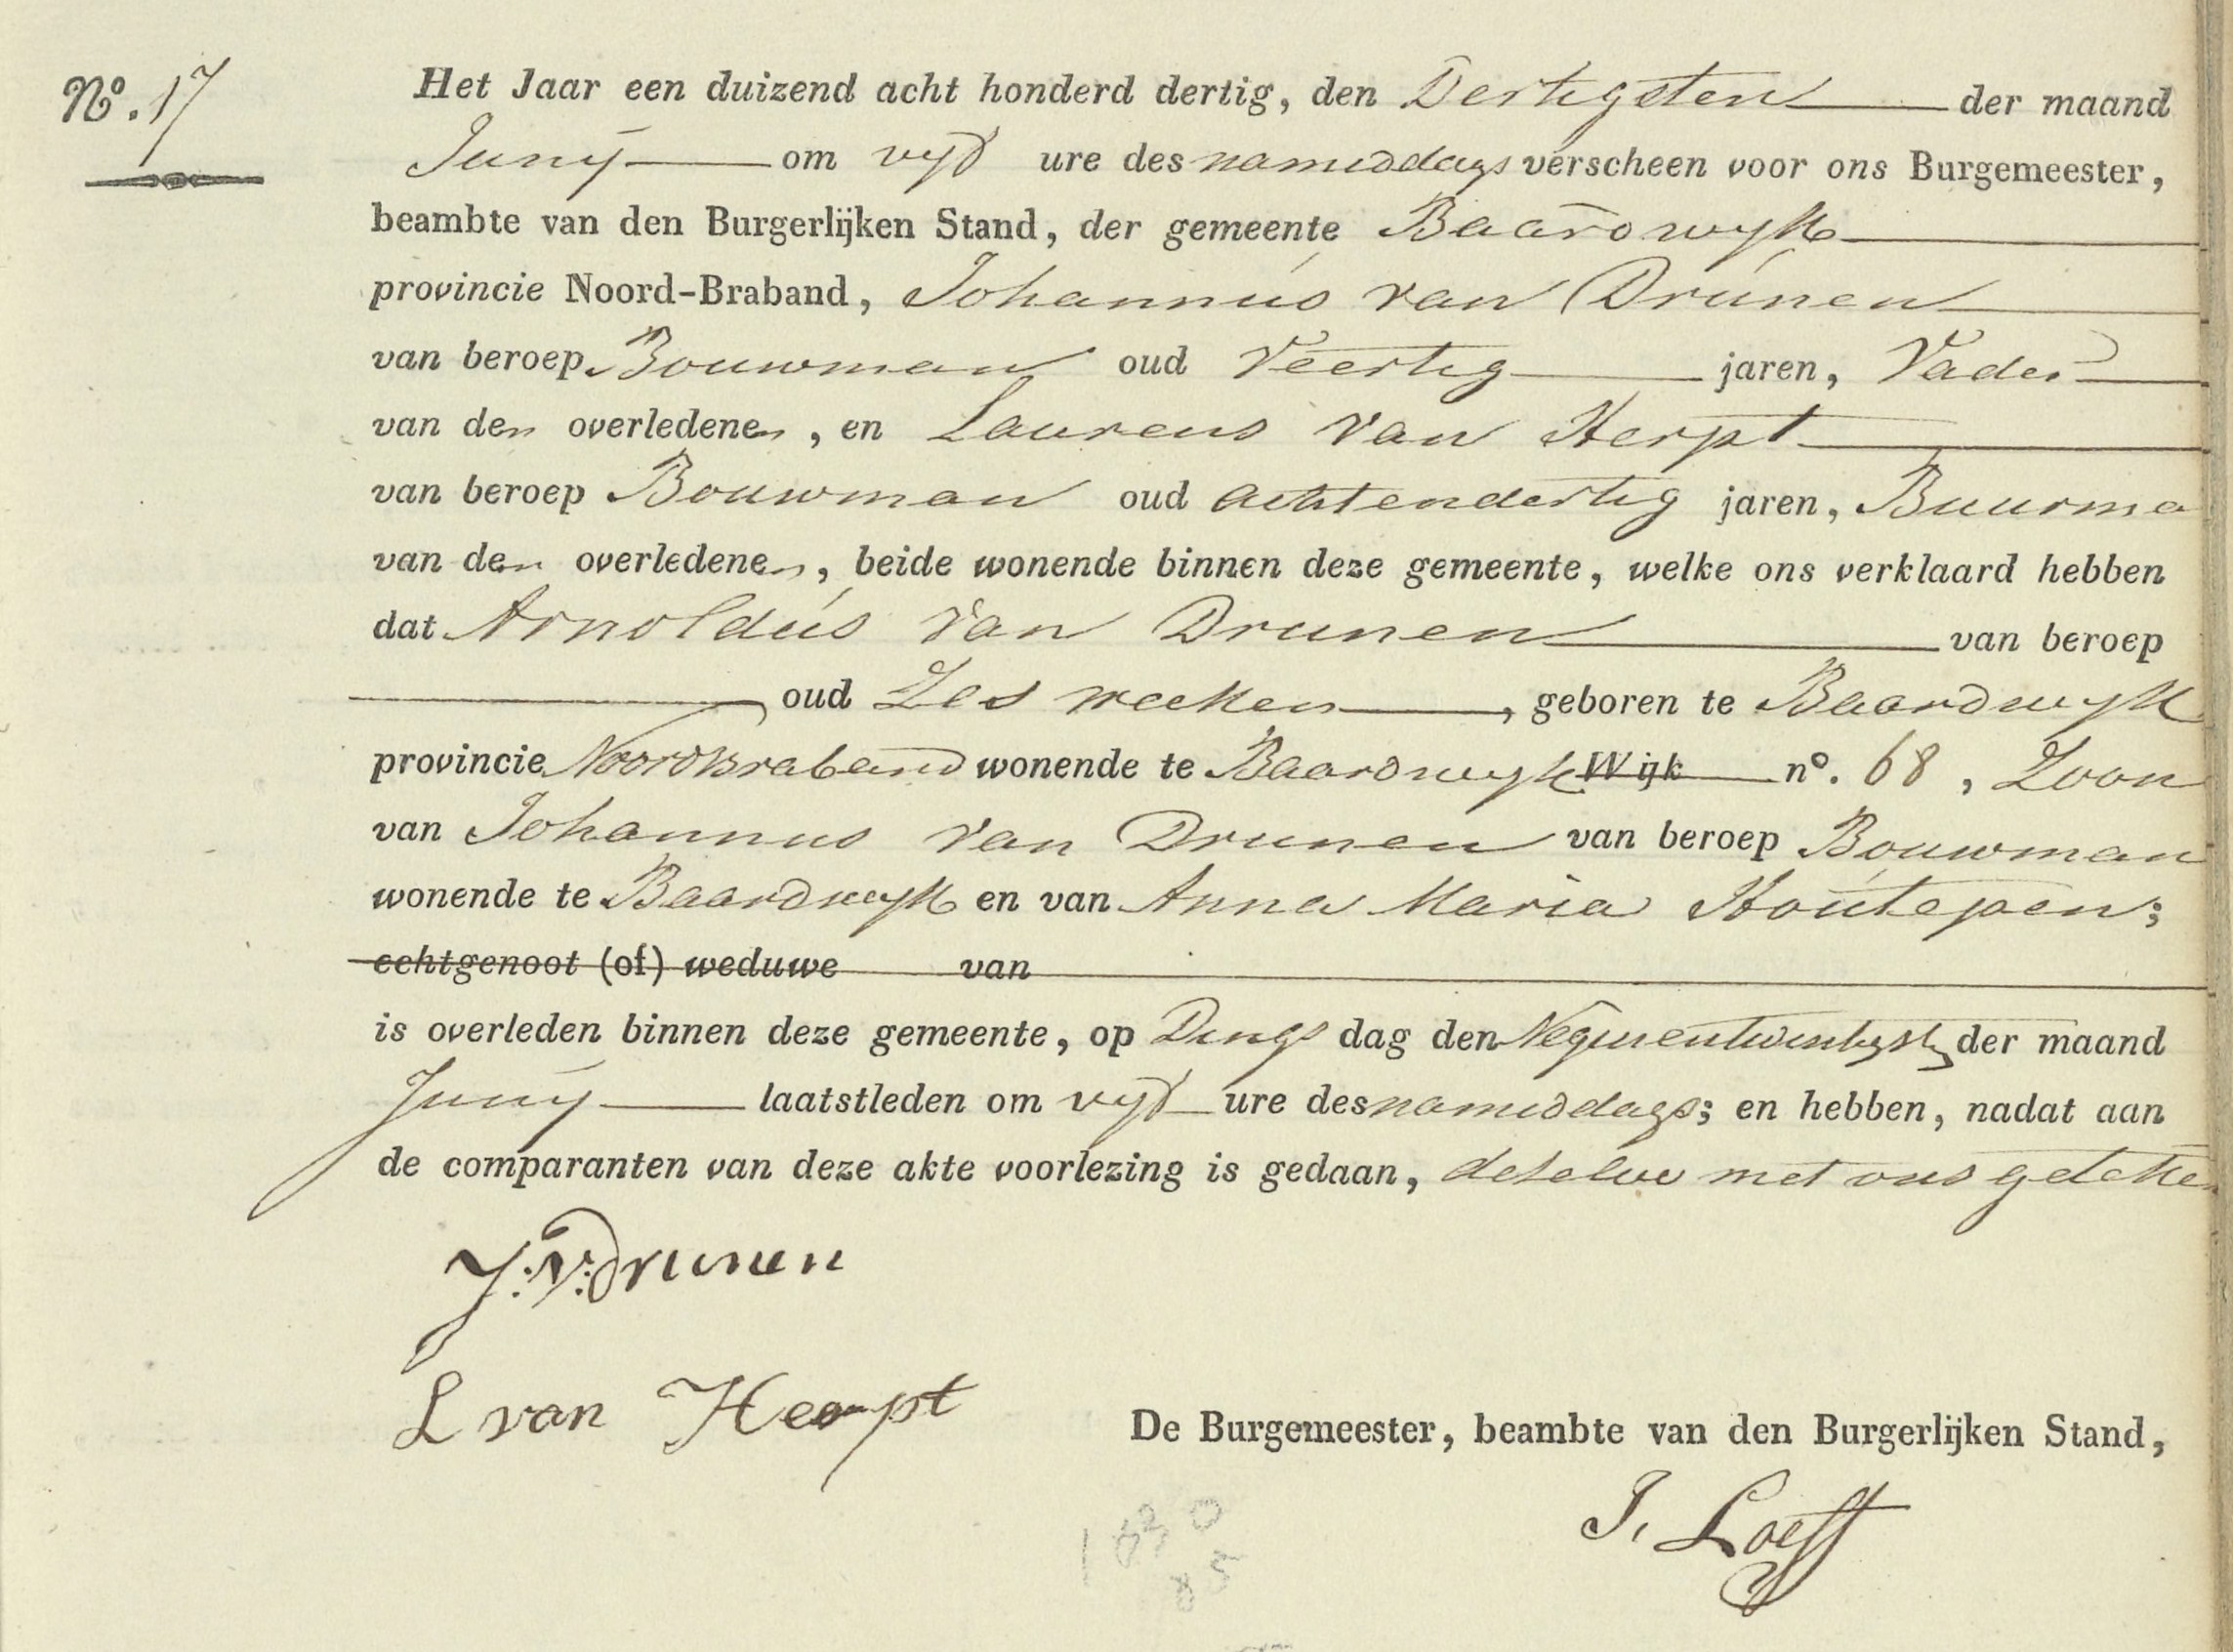 Nº. 17
Het Jaar een duizend acht honderd dertig, den Dertigsten der maand
Juny om vyf ure des namiddags verscheen voor ons Burgemeester,
beambte van den Burgerlijken Stand, der gemeente Baardwyk
provincie Noord-Braband, Johannus van Drunen
van beroep Bouwman oud Veertig jaren, Vader
van den overledenen, en Laurens van Herpt
van beroep Bouwman oud achtendertig jaren, Buurma
van den overledenen, beide wonende binnen deze gemeente, welke ons verklaard hebben
dat Arnoldus van Drunen van beroep
oud Zes weeken, geboren te Baardwyk
provincie Noordbraband wonende te Baardwyk Wijk nº. 68, Zoon
van Johannus van Drunen van beroep Bouwman
wonende te Baardwyk en van Anna Maria Houtepen;
echtgenoot (of) weduwe van
is overleden binnen deze gemeente, op Dings dag den Negenentwintigste der maand
Juny laatstleden om vyf ure des namiddags; en hebben, nadat aan
de comparanten van deze akte voorlezing is gedaan, deselve met ons geteke
J: V: Drunen
L van Heerpt
De Burgemeester, beambte van den Burgerlijken Stand,
J. Loeff
1830
85